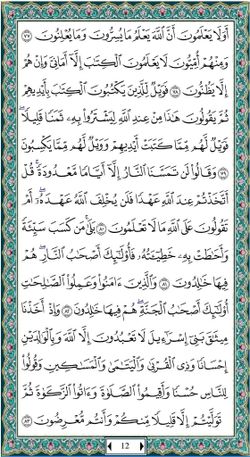 أَوَلَا يَعْلَمُونَ أَنَّ ٱللَّهَ يَعْلَمُ مَا يُسِرُّونَ وَمَا يُعْلِنُونَ ٧٧
وَمِنْهُمْ أُمِّيُّونَ لَا يَعْلَمُونَ ٱلْكِتَٰبَ إِلَّآ أَمَانِىَّ وَإِنْ هُمْ
إِلَّا يَظُنُّونَ ٧٨ فَوَيْلٌ لِّلَّذِينَ يَكْتُبُونَ ٱلْكِتَٰبَ بِأَيْدِيهِمْ
ثُمَّ يَقُولُونَ هَٰذَا مِنْ عِندِ ٱللَّهِ لِيَشْتَرُوا۟ بِهِۦ ثَمَنًا قَلِيلًا ۖ
فَوَيْلٌ لَّهُم مِّمَّا كَتَبَتْ أَيْدِيهِمْ وَوَيْلٌ لَّهُم مِّمَّا يَكْسِبُونَ
٧٩ وَقَالُوا۟ لَن تَمَسَّنَا ٱلنَّارُ إِلَّآ أَيَّامًا مَّعْدُودَةً ۚ قُلْ
أَتَّخَذْتُمْ عِندَ ٱللَّهِ عَهْدًا فَلَن يُخْلِفَ ٱللَّهُ عَهْدَهُۥٓ ۖ أَمْ
تَقُولُونَ عَلَى ٱللَّهِ مَا لَا تَعْلَمُونَ ٨٠ بَلَىٰ مَن كَسَبَ سَيِّئَةً
وَأَحَٰطَتْ بِهِۦ خَطِيٓـَٔتُهُۥ فَأُو۟لَٰٓئِكَ أَصْحَٰبُ ٱلنَّارِ ۖ هُمْ
فِيهَا خَٰلِدُونَ ٨١ وَٱلَّذِينَ ءَامَنُوا۟ وَعَمِلُوا۟ ٱلصَّٰلِحَٰتِ
أُو۟لَٰٓئِكَ أَصْحَٰبُ ٱلْجَنَّةِ ۖ هُمْ فِيهَا خَٰلِدُونَ ٨٢ وَإِذْ أَخَذْنَا
مِيثَٰقَ بَنِىٓ إِسْرَٰٓءِيلَ لَا تَعْبُدُونَ إِلَّا ٱللَّهَ وَبِٱلْوَٰلِدَيْنِ
إِحْسَانًا وَذِى ٱلْقُرْبَىٰ وَٱلْيَتَٰمَىٰ وَٱلْمَسَٰكِينِ وَقُولُوا۟
لِلنَّاسِ حُسْنًا وَأَقِيمُوا۟ ٱلصَّلَوٰةَ وَءَاتُوا۟ ٱلزَّكَوٰةَ ثُمَّ
تَوَلَّيْتُمْ إِلَّا قَلِيلًا مِّنكُمْ وَأَنتُم مُّعْرِضُونَ ٨٣
12